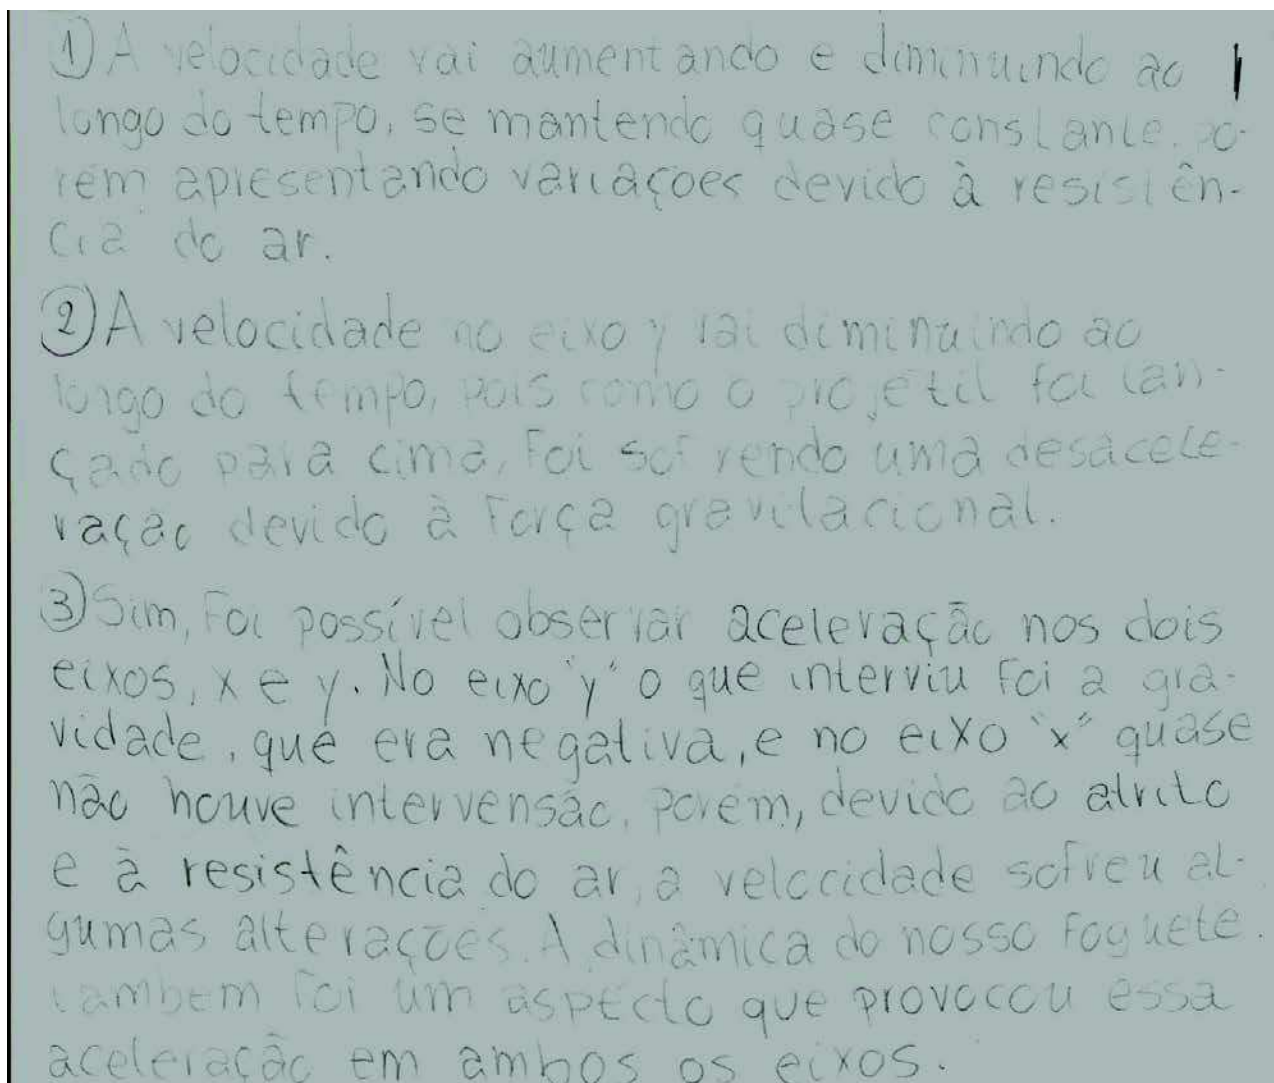 ① A velocidade vai aumentando e diminuindo ao
longo do tempo, se mantendo quase constante, po-
rém apresentando variações devido à resistên-
cia do ar.
② A velocidade no eixo y vai diminuindo ao
longo do tempo, pois como o projetil foi lan-
çado para cima, foi sofrendo uma desacele-
ração devido à força gravitacional.
③ Sim, foi possível observar aceleração nos dois
eixos, x e y. No eixo "y" o que interviu foi a gra-
vidade, que era negativa, e no eixo "x" quase
não houve intervensão, porém, devido ao atrito
e à resistência do ar, a velocidade sofreu al-
gumas alterações. A dinâmica do nosso foguete
também foi um aspecto que provocou essa
aceleração em ambos os eixos.